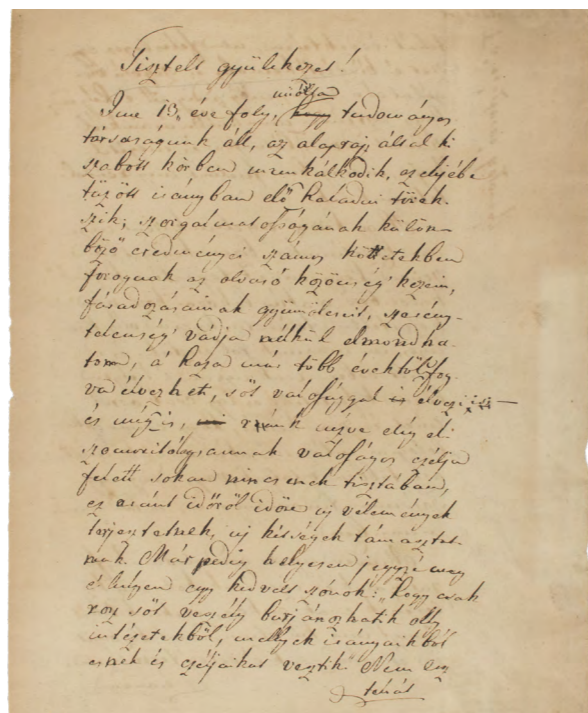 Tisztelt gyülekezet!
miólta
Ime 13. éve foly, hogy tudományos
társaságunk áll, az alaprajz által ki
szabott körben munkálkodik, s eléjébe
tüzött irányban elő haladni törek-
szik; szorgalmatosságának külön-
böző eredményei számos kötetekben
forognak az olvasó közönség' kezein,
fáradozásainak gyümölcseit, szerény-
telenség' vádja nélkül elmondha-
tom, a' haza már több évektől fog-
va élvezheti, sőt valósággal is élvezi is –
és mégis, mi reánk nézve elég el-
szomorítólag annak valóságos czélja
felett sokan nincsenek tisztában,
ez iránt időről időre uj vélemények
terjesztetnek, uj kétségek támasztat-
nak. Már pedig helyesen jegyzé meg
egy kedvelt szónok: "hogy csak
rosz sőt veszély burjánozhatik olly
intézetekből, mellyek irányaikból
esnek és czéljaikat vesztik." Nem
tehát